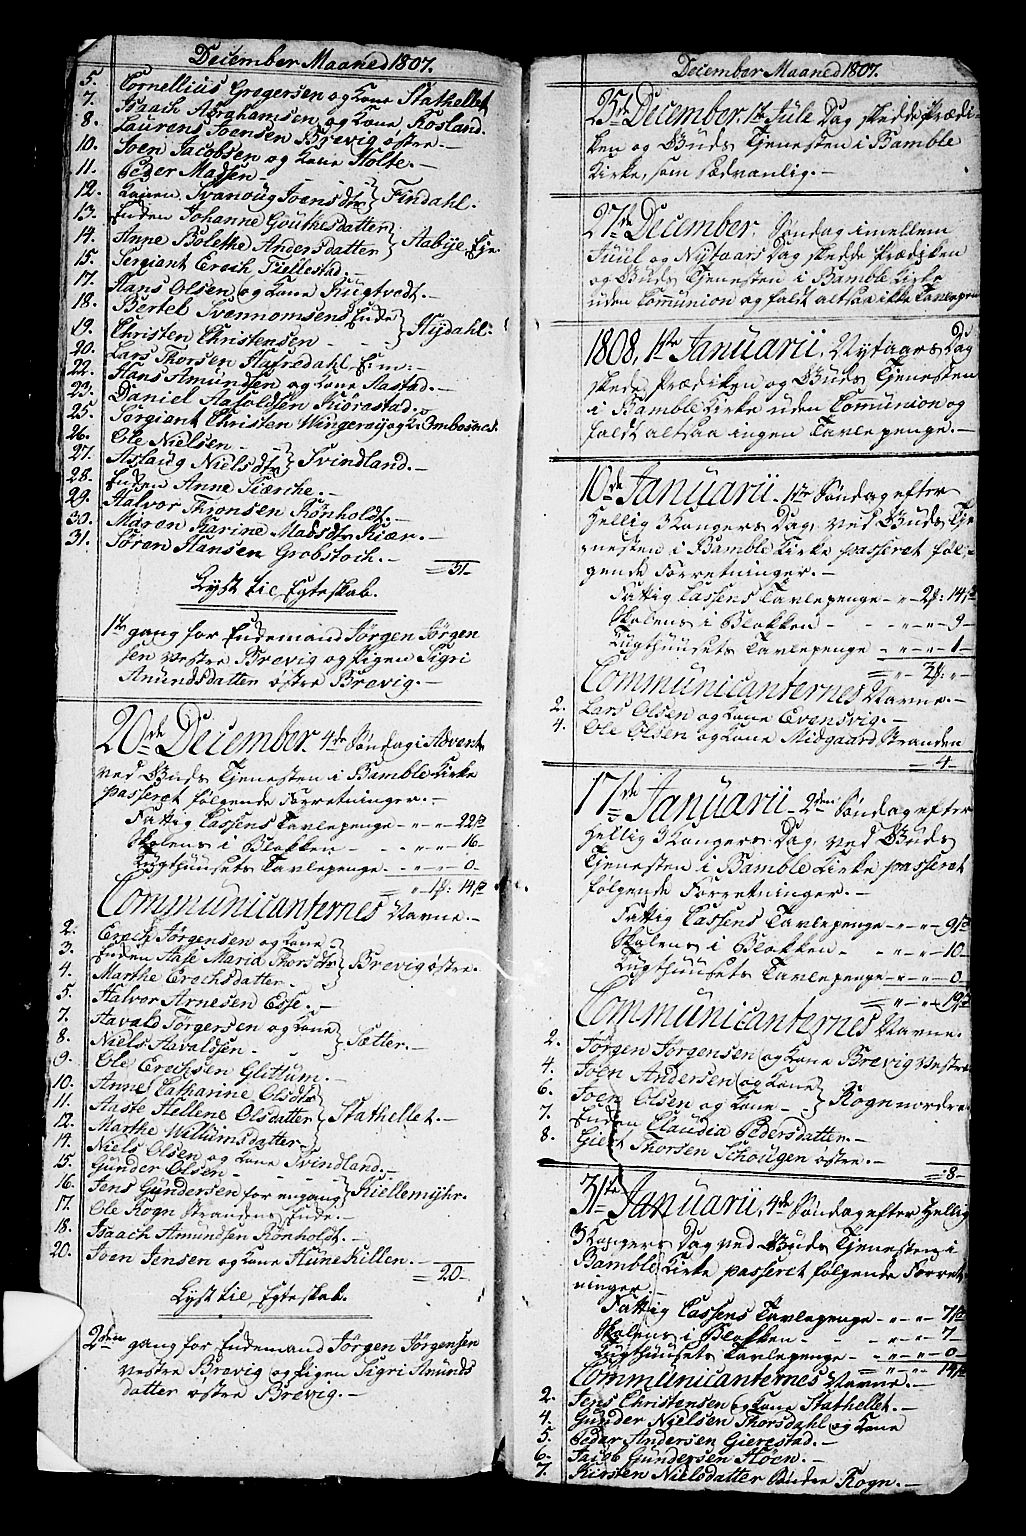 December Maaned 1807.
5. Cornellius Gregersen og Kone Stathellet
7. Isaach Abrahamsen og Kone Rosland.
8. Laurens Joensen Brevig østre.-
10. Soen Jacobsen og Kone Holte.-
11. Peder Madsen -
12. Konen Svanoug Joensdtr } Findahl.-
13. Enken Johanne Gouthesdatter
14. Anne Bolethe Andersdatter } Aabye Eje
15. Sergiant Erich Fiellestad.-
17. Hans Olsen og Kone Rugtvedt.-
18. Bertel Svennomsens Enke
19. Christen Christensen - - } Hydahl.
20. Lars Thorsen Hafredahl Eim:-
22. Hans Amundsen og Kone Aastad.-
23. Daniel Aasoldsen Kiørestad.-
25. Sergiant Christen Wingerøj og K: Ombosnes.
26. Ole Nielsen -
27. Aslaug Nielsdtr } Svindland.-
28. Enken Anne Kierche.-
29. Halvor Thronsen Rønholdt.-
30. Maren Karine Madsdtr Kiær.-
31. Søren Hansen Grobstoch.-
=31-
Lyst til Egteskab.
1te gang for Enkemand Jørgen Jørgen
sen vestre Brevig og Pigen Sigri
Amundsdatter østre Brevig.-
20de December. 4de Søndag i Advent
ved Guds Tjenesten i Bamble Kirke
passeret følgende Forretninger.-
Fattig Cassens Tavlepenge - " - " - 22s
Skolens i Blokken - - " - " - 16-
Tugthuusets Tavlepenge - " - " - 0-
= " 1f: 14s
Communicanternes Navne.-
2. Erich Jørgensen og Kone
3. Enken Aase Maria Thorsdtr } Brevig østre.
4. Marthe Erichsdatter -
5. Halvor Arnesen Esse.-
7. Aavald Torgersen og Kone
8. Niels Aavaldsen - } Sætter.-
9. Ole Erichsen Glittum.-
10. Anne Catharine Olsdtr
11. Aaste Hellene Olsdatter } Stathellet.-
12. Marthe Willumsdatter -
14. Niels Olsen og Kone Svindland.-
15. Gunder Olsen - -
16. Jens Gundersen for engang } Kiellemyhr.
17. Ole Rogn Strandens Enke -
18. Isaach Amundsen Rønholdt.-
20. Joen Jensen og Kone Hune Killen.-
=20-
Lyst til Egteskab.
2den gang for Enkemand Jørgen Jørgensen
vestre Brevig og Pigen Sigri Amunds
datter østre Brevig.-
December Maaned 1807.
25de December. 1te Jule Dag skedde Prædi-
ken og Guds Tjenesten i Bamble
Kirke, som sædvanlig.-
27de December. Søndag imellem
Juul og Nytaars Dag skedde Prædiken
og Guds Tjenesten i Bamble Kirke
uden Comunion og faldt altsaa ikke Tavlepen
1808. 1te Januarii. Nytaars Dag
skede Prædiken og Guds Tjenesten
i Bamble Kirke uden Comunion og
faldt altsaa ingen Tavlepenge.-
10de Januarii. 1te Søndag efter
Hellig 3 Kongers Dag, ved Guds Tje
nesten i Bamble Kirke passeret føl-
gende Forretninger.-
Fattig Cassens Tavlepenge - " - 2f: 14s
Skolens i Blokken - - " - " - 9-
Tugthuusets Tavlepenge - " - " - 1-
= " 3f: " -
Communicanternes Navne.-
2. Lars Olsen og Kone Evensvig.-
4. Ole Olsen og Kone Midgaard Stranden
=4-
17de Januarii - 2den Søndag efter
Hellig 3 Kongers Dag, ved Guds
Tjenesten i Bamble Kirke passeret
følgende Forretninger.-
Fattig Cassens Tavlepenge - " - " - 9s
Skolens i Blokken - - " - " - 10-
Tugthuusets Tavlepenge - " - " - 0-
= " - " - 19s
Communicanternes Navne.
2. Jørgen Jørgensen og Kone Brevig vestre
4. Joen Andersen og Kone
6. Joen Olsen og Kone - } Rogn nordre
7. Enken Claudia Pedersdatter.-
8. Giert Thorsen Schougen østre.-
=8-
31te Januarii, 4de Søndag efter Hellig
3 Kongers Dag ved Guds Tjenesten i
Bamble Kirke passeret følgende Forret
ninger.-
Fattig Cassens Tavlepenge - " - " - 7s
Skolens i Blokken - - " - " - 7-
Tugthuusets Tavlepenge - " - " - 0-
= " - " - 14s
Communicanternes Navne.-
2. Jens Christensen og Kone Stathellet.-
4. Gunder Nielsen Thorsdahl og Kone
5. Peder Andersen Gierestad.-
6. Jacob Gundersen Hoen.-
7. Kirsten Nielsdatter Søndre Rogn.-